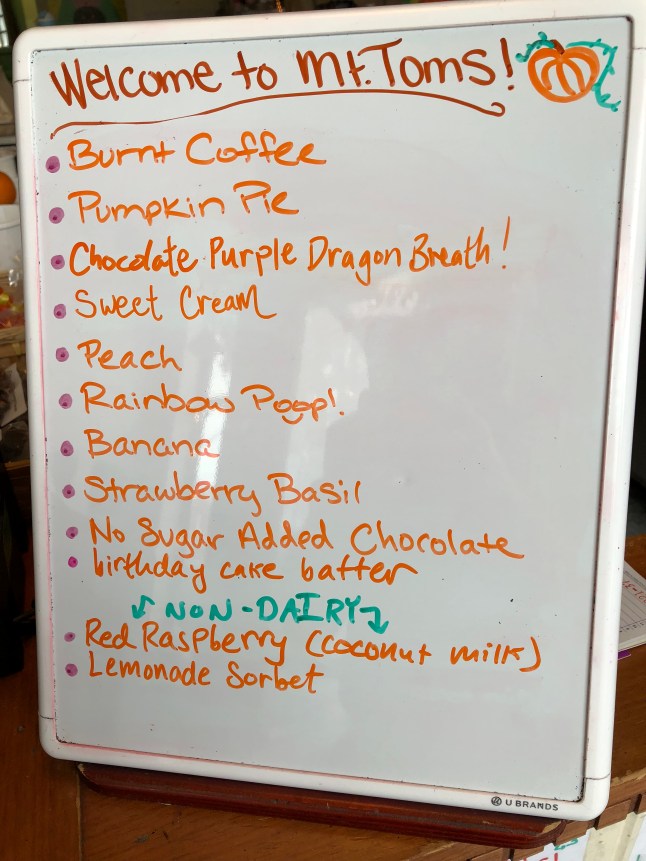 Welcome to Mt. Toms!
• Burnt Coffee
• Pumpkin Pie
• Chocolate Purple Dragon Breath!
• Sweet Cream
• Peach
• Rainbow Poop!
• Banana
• Strawberry Basil
• No Sugar Added Chocolate
• birthday cake batter
↙ NON-DAIRY ↘
• Red Raspberry (coconut milk)
• Lemonade Sorbet
U BRANDS